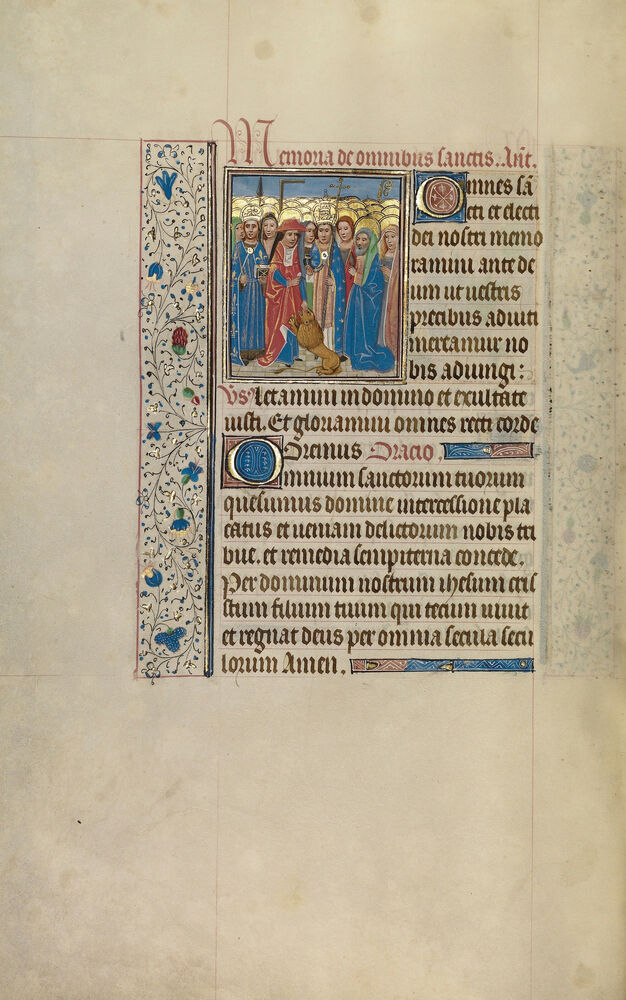 Memoria de omnibus sanctis. Ant.
Omnes sā
cti et electi
dei nostri memo
ramini ante de
um ut uestris
precibus adiuti
mereamur uo
bis adiungi:
Vs Letamini in domino et exultate
iusti. Et gloriamini omnes recti corde
Oremus Oracio.
Omnium sanctorum tuorum
quesumus domine intercessione pla
catus et ueniam delictorum nobis tri
bue. et remedia sempiterna concede.
Per dominum nostrum ihesum cris
stum filium tuum qui tecum uiuit
et regnat deus per omnia secula secu
lorum Amen.